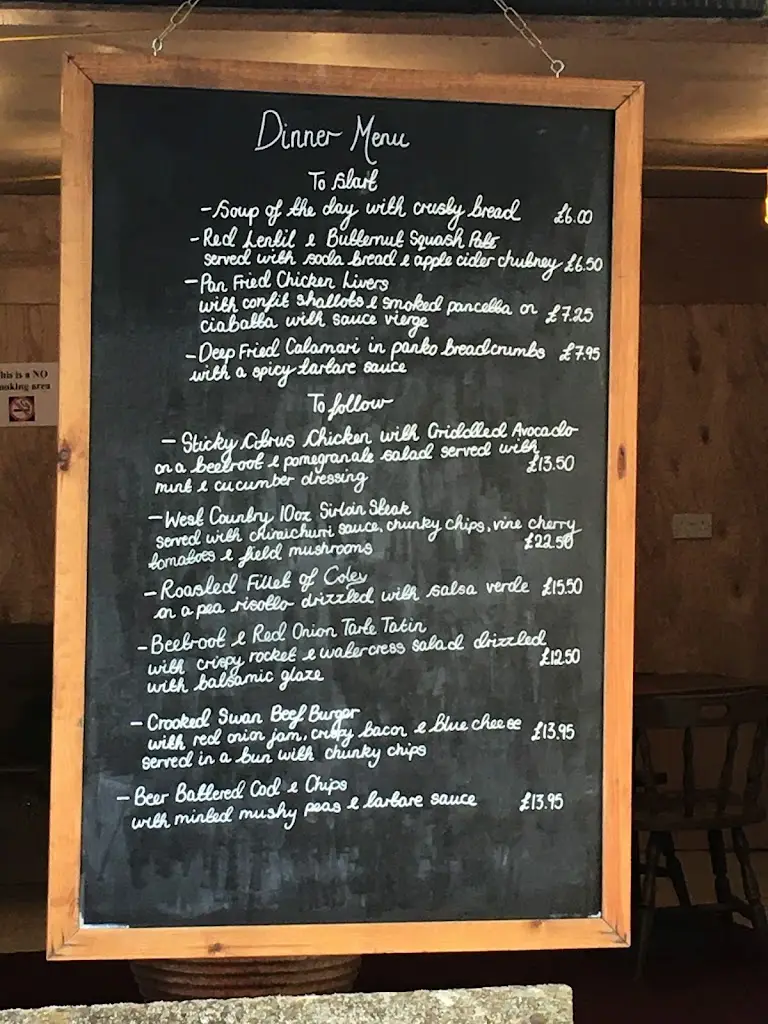 Dinner Menu
To Start
- Soup of the day with crusty bread £6.00
- Red Lentil & Butternut Squash Pate
served with soda bread & apple cider chutney £6.50
- Pan Fried Chicken Livers
with confit shallots & smoked pancetta on £7.25
ciabatta with sauce vierge
- Deep Fried Calamari in panko breadcrumbs £7.95
with a spicy tartare sauce
To follow
- Sticky Citrus Chicken with Griddled Avocado
on a beetroot & pomegranate salad served with £13.50
mint & cucumber dressing
- West Country 10oz Sirloin Steak
served with chimichurri sauce, chunky chips, vine cherry
tomatoes & field mushrooms £22.50
- Roasted Fillet of Coley
on a pea risotto drizzled with salsa verde £15.50
- Beetroot & Red Onion Tarte Tatin
with crispy rocket & watercress salad drizzled £12.50
with balsamic glaze
- Crooked Swan Beef Burger
with red onion jam, crispy bacon & Blue cheese £13.95
served in a bun with chunky chips
- Beer Battered Cod & Chips
with minted mushy peas & tartare sauce £13.95
his is a NO
oking area